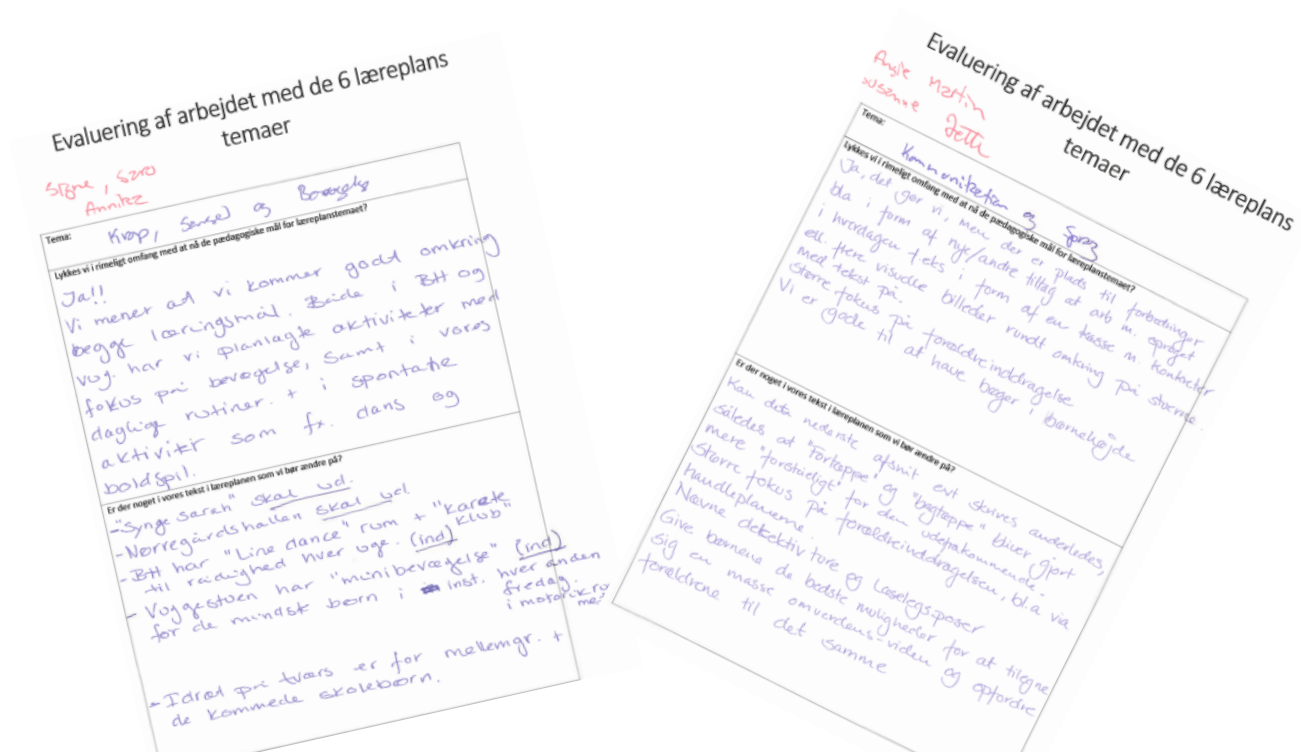 Evaluering af arbejdet med de 6 læreplans
temaer
Signe, Sara
Annika
Tema:
Krop, Sanser og Bevægelse
Lykkes vi i rimeligt omfang med at nå de pædagogiske mål for læreplanstemaet?
Ja!!
Vi mener at vi kommer godt omkring
begge læringsmål. Både i BH og
vug. har vi planlagte aktiviteter med
fokus på bevægelse, samt i vores
daglige rutiner. + i spontane
aktivitir som fx. dans og
boldspil.
Er der noget i vores tekst i læreplanen som vi bør ændre på?
- "Synge Sarah" skal ud.
- Nørregårdshallen skal ud
- BH har "Line dance" rum + "karate klub"
til rådighed hver uge. (ind)
- Vuggestuen har "minibevægelse" (ind)
for de mindste børn i inst. hver anden
fredag.
i motorikrummet
- Idræt på tværs er for mellemgr. +
de kommede skolebørn.
Evaluering af arbejdet med de 6 læreplans
temaer
Angie Martin
Susanne Jette
Tema:
Kommunikation og Sprog
Lykkes vi i rimeligt omfang med at nå de pædagogiske mål for læreplanstemaet?
Ja, det gør vi, men der er plads til forbedringer
bla i form af nye/andre tiltag at arb m. sproget
i hverdagen f.eks i form af en kasse m. kontakter
ell. flere visuelle billeder rundt omkring på stuerne.
med tekst på.
Større fokus på forældreinddragelse
Vi er gode til at have bøger i børnehøjde
Er der noget i vores tekst i læreplanen som vi bør ændre på?
Kan det nederste afsnit evt skrives anderledes,
således at "fortæppe" og "bagtæppe" bliver gjort
mere "forståeligt" for den udefrakommende.
Større fokus på forældreinddragelsen, bl.a via
handleplanerne.
Nævne detektiv tore og Læselegsposer
Give børnene de bedste muligheder for at tilegne
sig en masse omverdens-viden og opfordre
forældrene til det samme